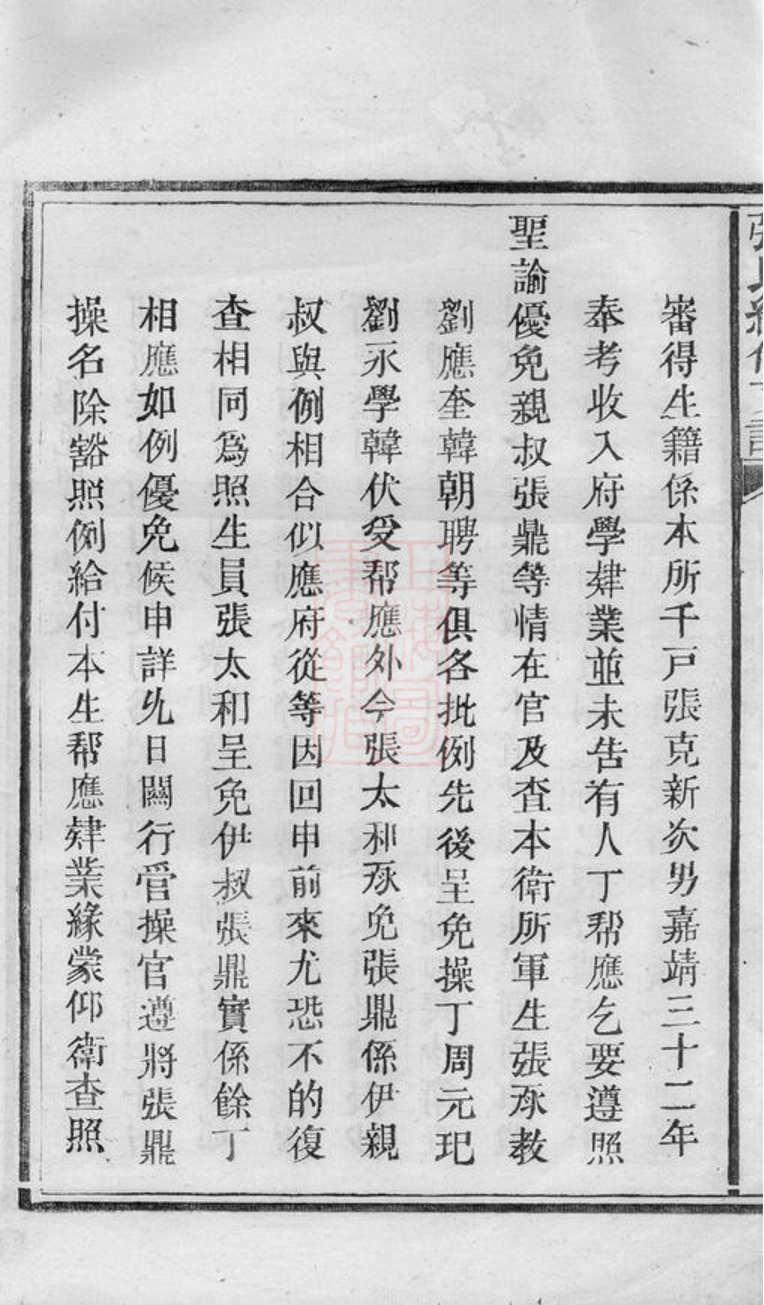 審得生籍係本所千戸張克新次男嘉靖三十二年
奉考收入府學肄業並未告有人丁帮應乞要遵照
聖諭優免親叔張鼎等情在官及査本衛所軍生張承教
劉應奎韓朝聘等俱各批例先後呈免操丁周元玘
劉永學韓伏受帮應外今張太和承免張鼎係伊親
叔與例相合似應府從等因回申前來尤恐不的復
查相同爲照生員張太和呈免伊叔張鼎實係餘丁
相應如例優免候申詳允日關行管操官遵將張鼎
操名除豁照例給付本生帮應肄業緣蒙仰衛查照